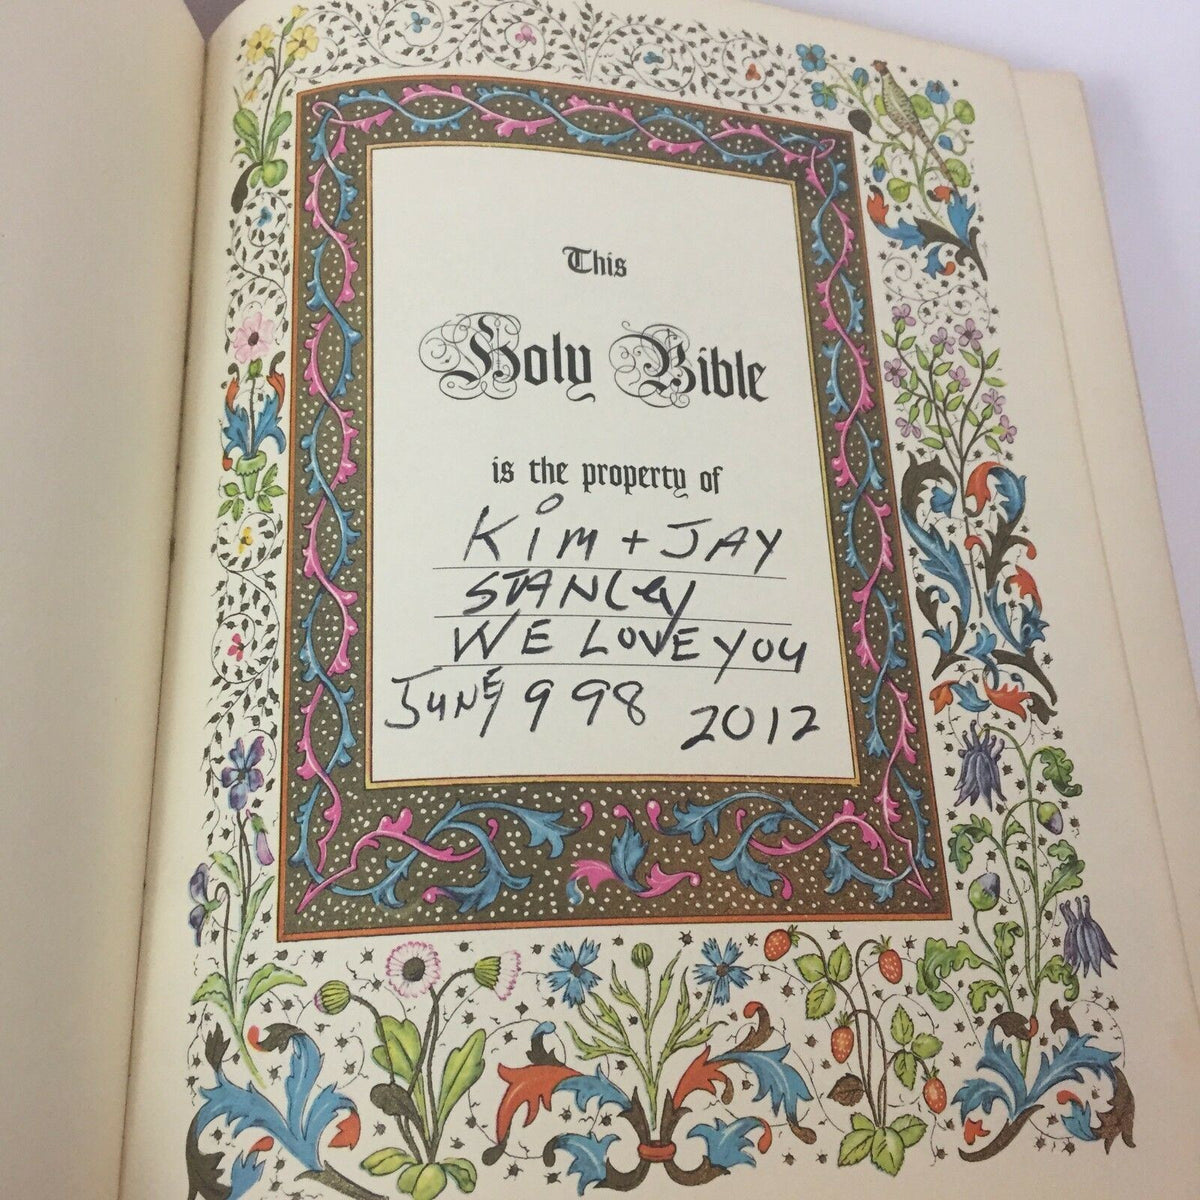 This
Holy Bible
is the property of
KiM + JAY
STANLey
WE LOVE YOU
JUNE 9 98 2012